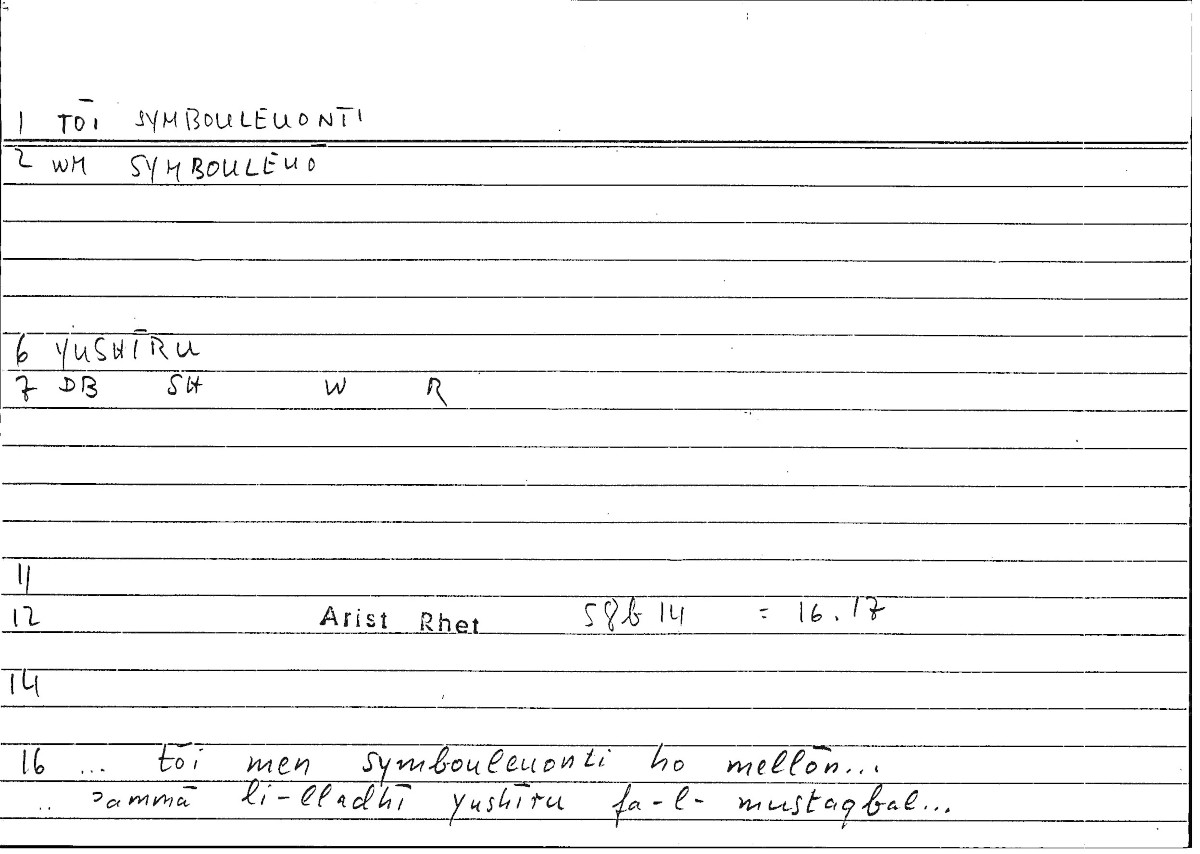 1 TŌI SYMBOULEUONTI
2 WM SYMBOULEUŌ
6 YUSHĪRU
7 DB SH W R
11
12 Arist Rhet 58b 14 = 16.17
14
16 ... tōi men symbouleuonti ho mellōn...
.. ʾammā li-lladhī yushīru fa-l- mustaqbal...